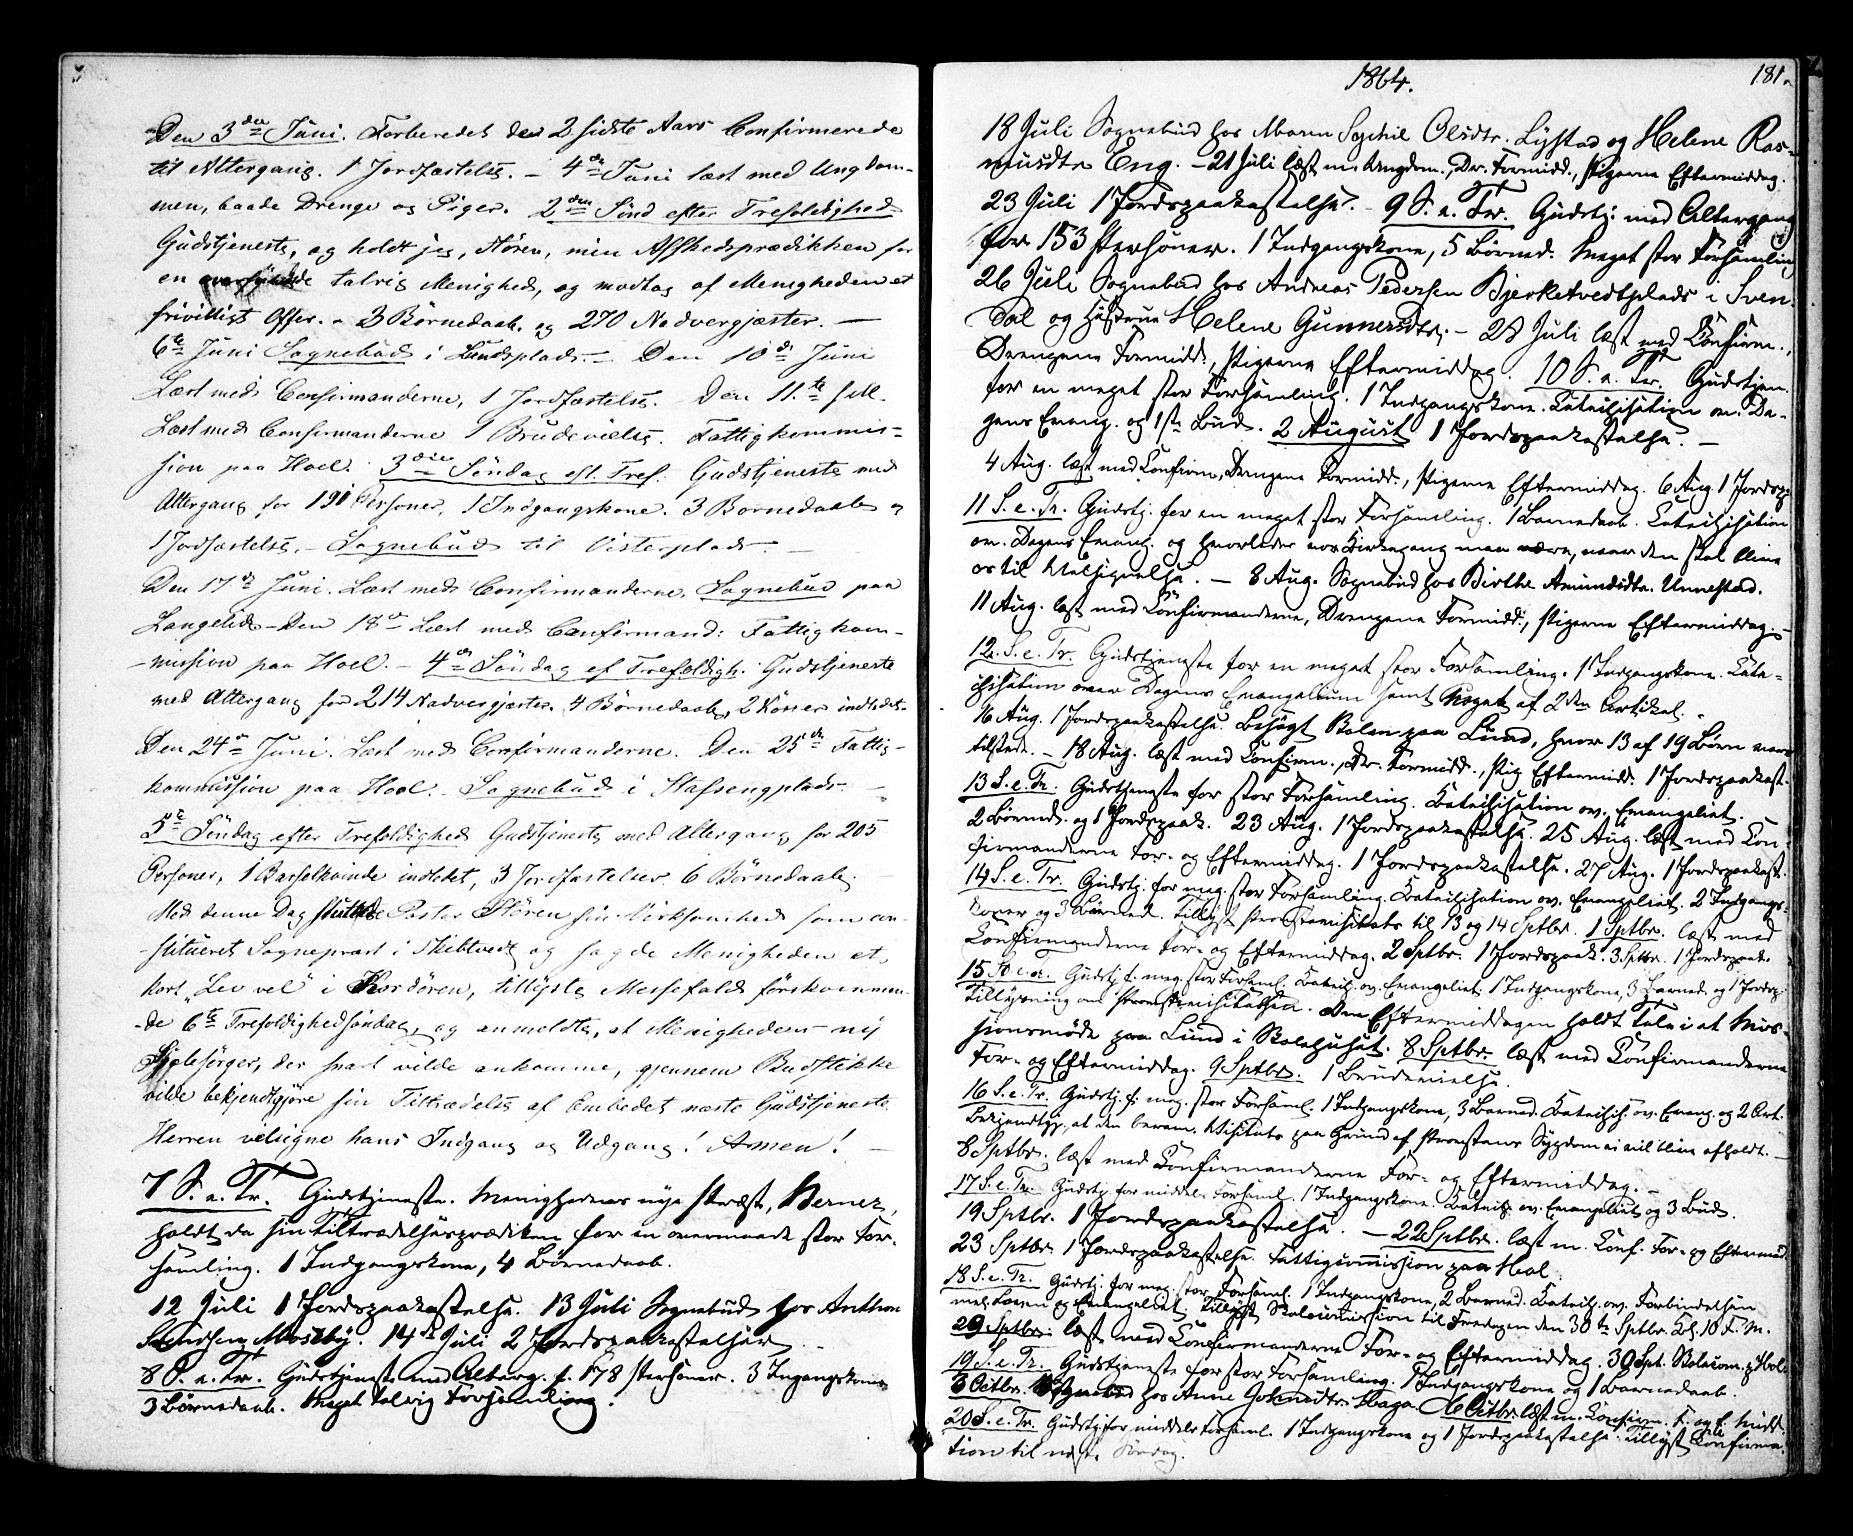 Den 3die Juni. Forberedet de 2 sidste Aars Confirmerede
til Altergang. 1 Jordfæstelse. – 4de Juni læst med Ungdom-
men, baade Drenge og Piger. 2den Sønd efter Trefoldighed
Gudstjeneste, og holdt jeg, Støren, min Afskedsprædikken for
en talrig Menighed, og modtog af Menigheden et
frivilligt Offer. – 3 Børnedaab. og 270 Nadvergjæster. –
6te Juni Sognebud i Lundsplads. – Den 10de Juni
Læst med Confirmanderne, 1 Jordfæstelse. Den 11te
Læst med Confirmanderne 1 Brudevielse. Fattigkommis-
sion paa Hoel. 3die Søndag eft. Tref. Gudstjeneste med
Altergang for 191 Personer, 1 Indgangskone. 3 Børnedaab og
1 Jordfæstelse. – Sognebud til Visterplads. –
Den 17de Juni. Læst med Confirmanderne. Sognebud paa
Langelid – Den 18de Læst med Confirmand: Fattigkom-
-mission paa Hoel. – 4de Søndag ef Trefoldigh. Gudstjeneste
med Altergang for 214 Nadvergjæster. 4 Børnedaab, 2 Koner indledet.
Den 24de Juni. Læst med Confirmanderne. Den 25de Fattig-
kommission paa Hoel. Sognebud i Stafsengplads. –
5te Søndag efter Trefoldighed Gudstjeneste med Altergang for 205
Personer, 1 Barselkvinde indledet, 3 Jordfæstelser 6 Børnedaab. –
Med denne Dag sluttede Pastor Støren sin Virksomhed som con-
-stitueret Sognepræst i Skibtvedt og sagde Menigheden et
kort "Lev vel" i Kordøren, tillyste Messefald førstkommen-
-de 6te Trefoldighedsøndag, og anmeldte, at Menighedens ny
Sjælesørger, der snart vilde ankomme, gjennem Budstikke
vilde bekjendtgjøre sin Tiltrædelse af Embedet næste Gudstjeneste.
Herren velsigne hans Indgang og Udgang! Amen! –
7 S. e. Tr. Gudstjeneste. Menighedens nye Præst, Berner,
holdt da sin Tiltrædelsesprædiken for en overmaade stor For-
samling. 1 Indgangskone, 4 Børnedaab.
12 Juli 1 Jordspaakastelse. 13 Juli Sognebud hos Anthon
Mostby. 14de Juli 2 Jordspaakastelser.
8 S. e. Tr. Gudstjeneste med Alterg. f. 178 Personer. 3 Ingangskoner
3 Børnedaab. Meget talrig Forsamling.
1864.
181.
18 Juli Sognebud hos Maren Sophie Olsdtr. Lystad og Helene Ras-
musdtr Eng. – 21 Juli læst m. Ungdom., Dr. Formidd., Pigerne Eftermiddag.
23 Juli 1 Jordspaakastelse. – 9 S. e. Tr. Gudstj. med Altergang
for 153 Personer. 1 Indgangskone, 5 Børned. Meget stor Forsamling
26 Juli Sognebud hos Andreas Pedersen Bjerketvedtplads i Sven-
dal og Hustrue Helene Gunnersdtr. – 28 Juli læst med Confirm.,
Drengene Formidd., Pigerne Eftermiddag. 10 S. e. Tr. Gudstjen.
for en meget stor Forsamling. 1 Indgangskone. Catechisation ov. Da-
gens Evang. og 1ste Bud. 2 August 1 Jordspaakastelse. –
4 Aug. læst med Confirm, Drengene Formidd., Pigerne Eftermiddag. 6 Aug. 1 Jordsp.
11 S. e. Tr. Gudstj. for en meget stor Forsamling. 1 Barnedaab. Catechisation
ov. Dagens Evang. og hvorledes vor Kirkegang maa være, naar den skal blive
os til Velsignelse. – 8 Aug. Sognebud hos Birthe Amundsdtr. Unnestad.
11 Aug. læst med Confirmanderne, Drengene Formidd., Pigerne Eftermiddag. –
12. S. e. Tr. Gudstjeneste for en meget stor Forsamling. 1 Indgangskone. Cate-
chisation over Dagens Evangelium samt Noget af 2den Artikel. –
16 Aug. 1 Jordspaakastelse. Besøgt Skolen paa Lund, hvor 13 af 19 Børn vare
tilstede. – 18 Aug. læst med Confirm., Dr. Formidd., Pig Eftermidd. 1 Jordspaakast.
13 S. e. Tr. Gudstjeneste for stor Forsamling. Catechisation ov. Evangeliet.
2 Børned. og 1 Jordspaak. 23 Aug. 1 Jordspaakastelse. 25 Aug. læst med Con-
firmanderne For- og Eftermiddag. 1 Jordspaakastelse. 27 Aug. 1 Jordspaakast.
14 S. e. Tr. Gudstj. for meg. stor Forsamling. Catechisation ov. Evangeliet. 2 Indgangs-
koner og 3 Børned. Tillyst Provstevisitats til 13 og 14 Sptbr. 1 Sptbr. læst med
Confirmanderne For- og Eftermiddag. 2 Sptbr. 1 Jordspaak. 3 Sptbr. 1 Jordspaak.
15 S. e. Tr. Gudstj. f. meg. stor Forsaml. Catech. ov. Evangeliet 1 Indgangskone, 3 Barned. og 1 Jordsp.
Tillysning om Provstevisitatsen. Om Eftermiddagen holdt Tale i et Mis-
sionsmøde paa Lund i Skolehuset. 8 Sptbr. læst med Confirmanderne
For- og Eftermiddag. 9 Sptbr. 1 Brudevielse.
16 S. e. Tr. Gudstj. f. meg. stor Forsaml. 1 Indgangskone, 3 Barned. Catechis. ov. Evang. og 2 Art.
Bekjendtgj., at den beram. Visitats paa Grund af Provstens Sygdom ei vil blive afholdt. –
8 Sptbr. læst med Confirmanderne For- og Eftermiddag. –
17 S. e. Tr. Gudstj. for middels Forsaml. 1 Indgangskone. Catech. ov. Evangeliet og 3 Bud.
19 Sptbr. 1 Jordspaakastelse. – 22 Sptbr. læst m. Conf. For- og Eftermid.
23 Sptbr 1 Jordspaakastelse. Fattigcommission paa Hoel.
18 S. e. Tr. Gudstj. for meg. stor Forsaml. 1 Indgangskone, 2 Barned. Catech. ov. Forbindelsen
mel. Loven og Evangeliet. Tillyst Skolecommission til Fredagen den 30te Sptbr. Kl. 10 F. M.
29 Sptbr. læst med Confirmanderne For- og Eftermiddag. 30 Spt. Skolecom. p. Hoel
19 S. e. Tr. Gudstjeneste for stor Forsamling. 1 Indgangskone og 1 Barnedaab.
Octbr. Sognebud hos Anne Haga. 6 Octbr. læst m. Confirm. F. og E. Midd.
20 S. e. Tr. Gudstj. for middels Forsaml. 1 Indgangskone og 1 Jordspaakastelse. Tillyst Confirma-
tion til næst. Søndag.